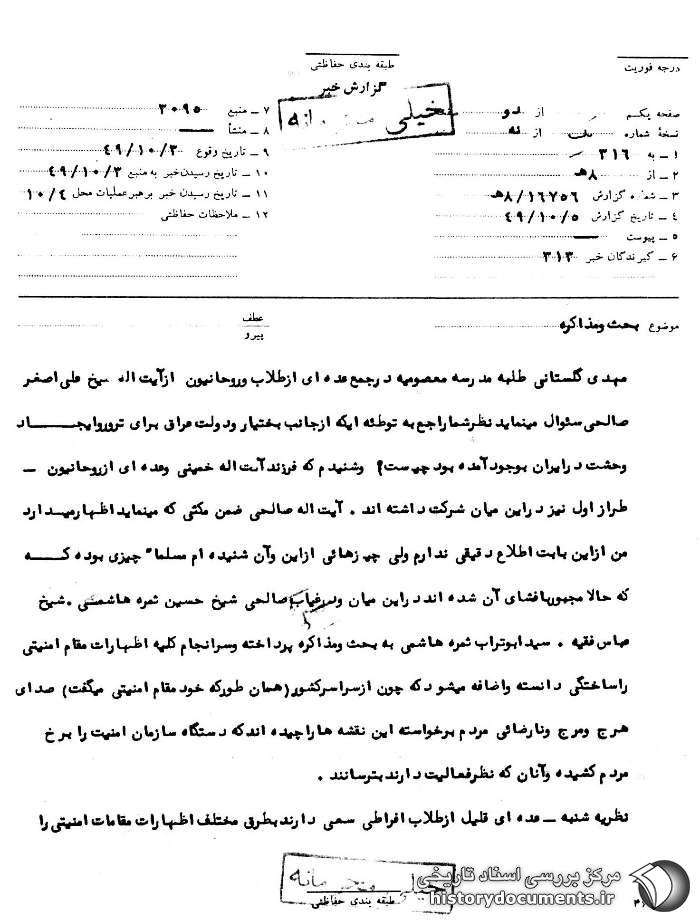 درجه فوریت
طبقه بندی حفاظتی
گزارش خبر
خیلی محرمانه
صفحه یکم از دو
نسخهٔ شماره از نه
۱ ـ به ۳۱۶
۲ ـ از ۸هـ
۳ ـ شماره گزارش ۸/۱۶۷۵۶هـ
۴ ـ تاریخ گزارش ۴۹/۱۰/۵
۵ ـ پیوست ـ
۶ ـ گیرندگان خبر ۳۱۳
۷ ـ منبع ۲۰۹۵
۸ ـ منشأ ـ
۹ ـ تاریخ وقوع ۴۹/۱۰/۳
۱۰ ـ تاریخ رسیدن خبر به منبع ۴۹/۱۰/۳
۱۱ ـ تاریخ رسیدن خبر برهبر عملیات محل ۱۰/۴
۱۲ ـ ملاحظات حفاظتی
موضوع بحث ومذاکره
عطف
پیرو
مهدی گلستانی طلبه مدرسه معصومیه درجمع عده ای ازطلاب وروحانیون ازآیت اله شیخ علی اصغر
صالحی سئوال مینماید نظرشماراجع به توطئه ایکه ازجانب بختیار ودولت عراق برای تروروایجـــاد
وحشت درایران بوجودآمده بودچیست؟ وشنیدیم که فرزندآیت اله خمینی وعده ای ازروحانیون ـ
طراز اول نیز دراین میان شرکت داشته اند . آیت اله صالحی ضمن مکثی که مینماید اظهارمیـدارد
من ازاین بابت اطلاع دقیقی ندارم ولی چیزهائی ازاین وآن شنیده ام مسلما" چیزی بوده کـــه
که حالا مجبوربافشای آن شده اند دراین میان ودرغیاب صالحی شیخ حسین ثمره هاشمی . شیخ
عباس فقیه . سیدابوتراب ثمره هاشمی به بحث ومذاکره پرداخته وسرانجام کلیه اظهارات مقام امنیتی
راساختگی دانسته واضافه میشودکه چون ازسراسرکشور(همان طورکه خود مقام امنیتی میگفت) صدای
هرج ومرج ونارضائی مردم برخواسته این نقشه هاراچیده اندکه دستگاه سازمان امنیت را برخ
مردم کشیده وآنان که نظرفعالیت دارند بترسانند .
نظریه شنبه ـ عده ای قلیل ازطلاب افراطی سعی دارند بطرق مختلف اظهارات مقامات امنیتی را
خیلی محرمانه
طبقه بندی حفاظتی
مرکز بررسی اسناد تاریخی
historydocuments.ir